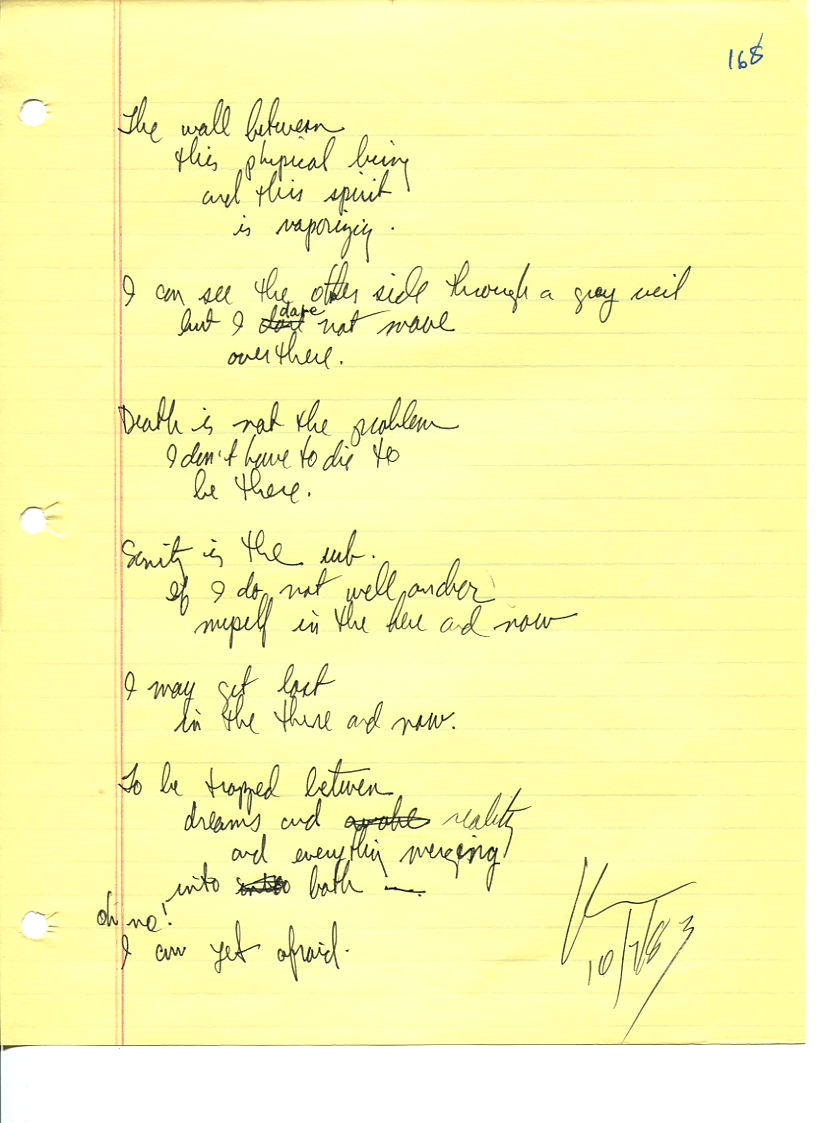 168
The wall between
this physical being
and this spirit
is vaporizing.
I can see the other side through a gray veil
but I dare not move
over there.
Death is not the problem
I don't have to die to
be there.
Sanity is the rub.
If I do not well anchor
myself in the here and now
I may get lost
in the there and now.
To be trapped between
dreams and awake reality
and everything merging
into into both —
oh no!
I am yet afraid.
10/7/83